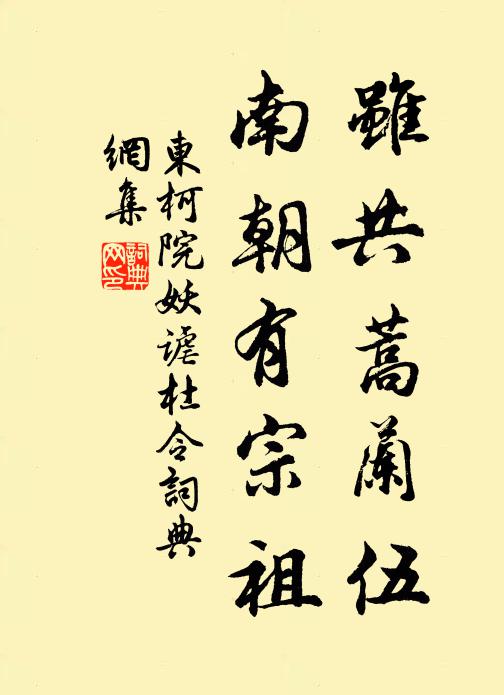 雖共蒿蘭伍
南朝有宗祖
東柯院妖謔杜令詞典
網集
詞典
网印